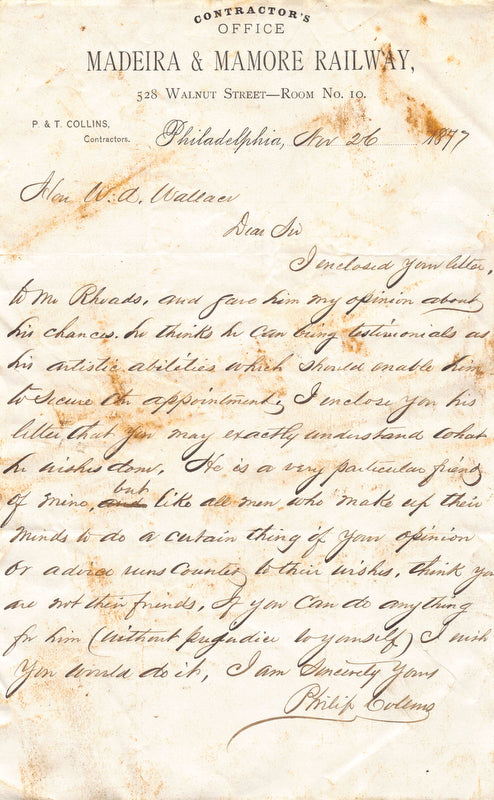 CONTRACTOR'S
OFFICE
MADEIRA & MAMORE RAILWAY,
528 WALNUT STREET—ROOM NO. 10.
P. & T. COLLINS,
Contractors.
Philadelphia, Nov 26 1877
Hon W. A. Wallace
Dear Sir
I enclosed your letter,
to Mr Rhoads, and gave him my opinion about
his chances. he thinks he can bring testimonials as
his artistic abilities which should enable him
to secure the appointment, I enclose you his
letter that you may exactly understand what
he wishes done, He is a very particular friend
of mine, and but like all men who make up their
minds to do a certain thing if your opinion
or advice runs counter to their wishes, think you
are not their friends, If you can do anything
for him (without prejudice to yourself) I wish
you would do it, I am Sincerely Yours
Philip Collins